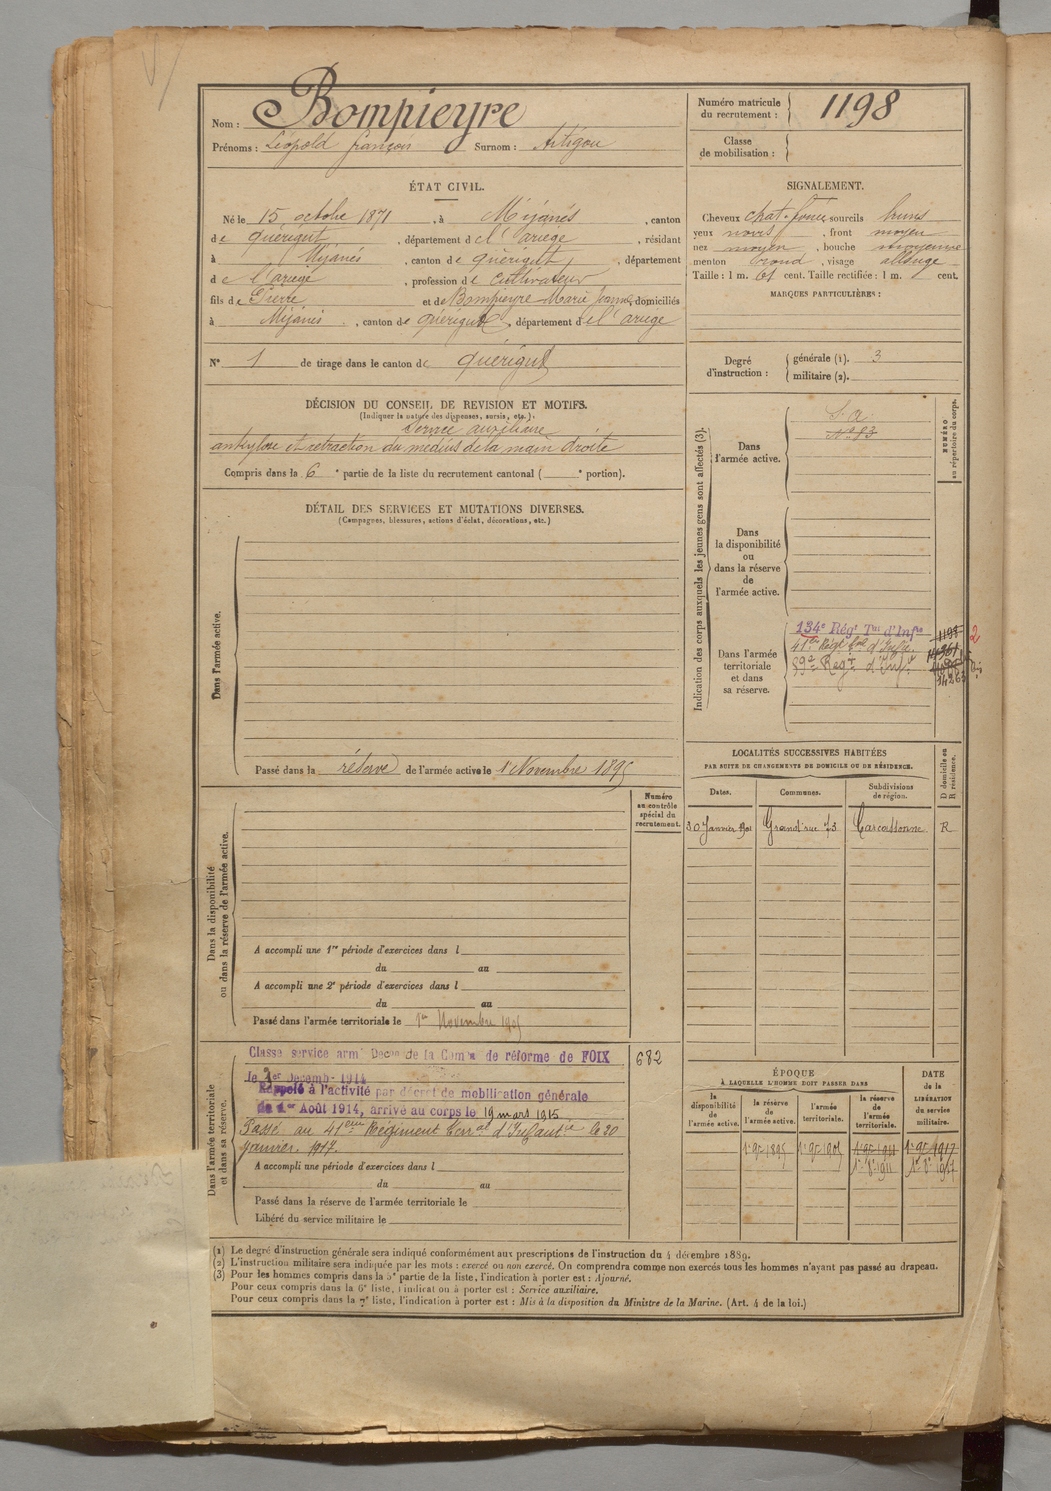 Nom : Bompieyre
Prénoms : Léopold françois Surnom : Artigou
Numéro matricule
du recrutement : 1198
Classe
de mobilisation :
ÉTAT CIVIL.
Né le 15 octobre 1871, à Mijanés, canton
de quérigut, département de l'ariege, résidant
à Mijanés, canton de quérigut, département
de l'ariege, profession de Cultivateur
fils de Pierre et de Bompieyre Marie Jeanne, domiciliés
à Mijanés, canton de quérigut, département de l'ariege
N° 1 de tirage dans le canton de quérigut
SIGNALEMENT.
Cheveux chat. foncé sourcils bruns
yeux noirs, front moyen
nez moyen, bouche moyenne
menton rond, visage allongé
Taille : 1 m. 61 cent. Taille rectifiée : 1 m. cent.
MARQUES PARTICULIÈRES :
Degré
d'instruction :
générale (1). 3
militaire (2).
DÉCISION DU CONSEIL DE REVISION ET MOTIFS.
(Indiquer la nature des dispenses, sursis, etc.).
Service auxiliaire
ankylose et rétraction du médius de la main droite
Compris dans la 6e partie de la liste du recrutement cantonal ( e portion).
DÉTAIL DES SERVICES ET MUTATIONS DIVERSES.
(Campagnes, blessures, actions d'éclat, décorations, etc.)
Dans l'armée active.
Passé dans la réserve de l'armée active le 1er Novembre 1895
Indication des corps auxquels les jeunes gens sont affectés (3).
NUMÉRO
au répertoire du corps.
Dans
l'armée active.
S. a.
N° 93
Dans
la disponibilité
ou
dans la réserve
de
l'armée active.
Dans l'armée
territoriale
et dans
sa réserve.
134e Régt Tal d'Infie 1198 2
41em Régt Tal d'Infie
89e Regt d'Infie
LOCALITÉS SUCCESSIVES HABITÉES
PAR SUITE DE CHANGEMENTS DE DOMICILE OU DE RÉSIDENCE.
D domicile ou
R résidence.
Dates. Communes. Subdivisions
de région.
30 Janvier 1901 Grand'rue 73 Carcassonne R
Numéro
au contrôle
spécial du
recrutement.
Dans la disponibilité
ou dans la réserve de l'armée active.
A accompli une 1re période d'exercices dans l
du au
A accompli une 2e période d'exercices dans l
du au
Passé dans l'armée territoriale le 1er Novembre 1905
Dans l'armée territoriale
et dans sa réserve.
Classé service armé Decon de la Comon de réforme de FOIX 682
le 1er Décemb- 1914
Rappelé à l'activité par décret de mobilisation générale
du 1er Août 1914, arrivé au corps le 19 mars 1915
Passé au 41eme Régiment Terral d'Infantie le 20
Janvier 1917.
A accompli une période d'exercices dans l
du au
Passé dans la réserve de l'armée territoriale le
Libéré du service militaire le
ÉPOQUE
À LAQUELLE L'HOMME DOIT PASSER DANS
la
disponibilité
de
l'armée active.
la réserve
de
l'armée active.
l'armée
territoriale.
la réserve
de
l'armée
territoriale.
DATE
de la
LIBÉRATION
du service
militaire.
1er 9bre 1895 1er 9bre 1905 1er 9bre 1911 1er 9bre 1917
1er 8bre 1911 1er 8bre 1917
(1) Le degré d'instruction générale sera indiqué conformément aux prescriptions de l'instruction du 4 décembre 1889.
(2) L'instruction militaire sera indiquée par les mots : exercé ou non exercé. On comprendra comme non exercés tous les hommes n'ayant pas passé au drapeau.
(3) Pour les hommes compris dans la 5e partie de la liste, l'indication à porter est : Ajourné.
Pour ceux compris dans la 6e liste, l'indication à porter est : Service auxiliaire.
Pour ceux compris dans la 7e liste, l'indication à porter est : Mis à la disposition du Ministre de la Marine. (Art. 4 de la loi.)